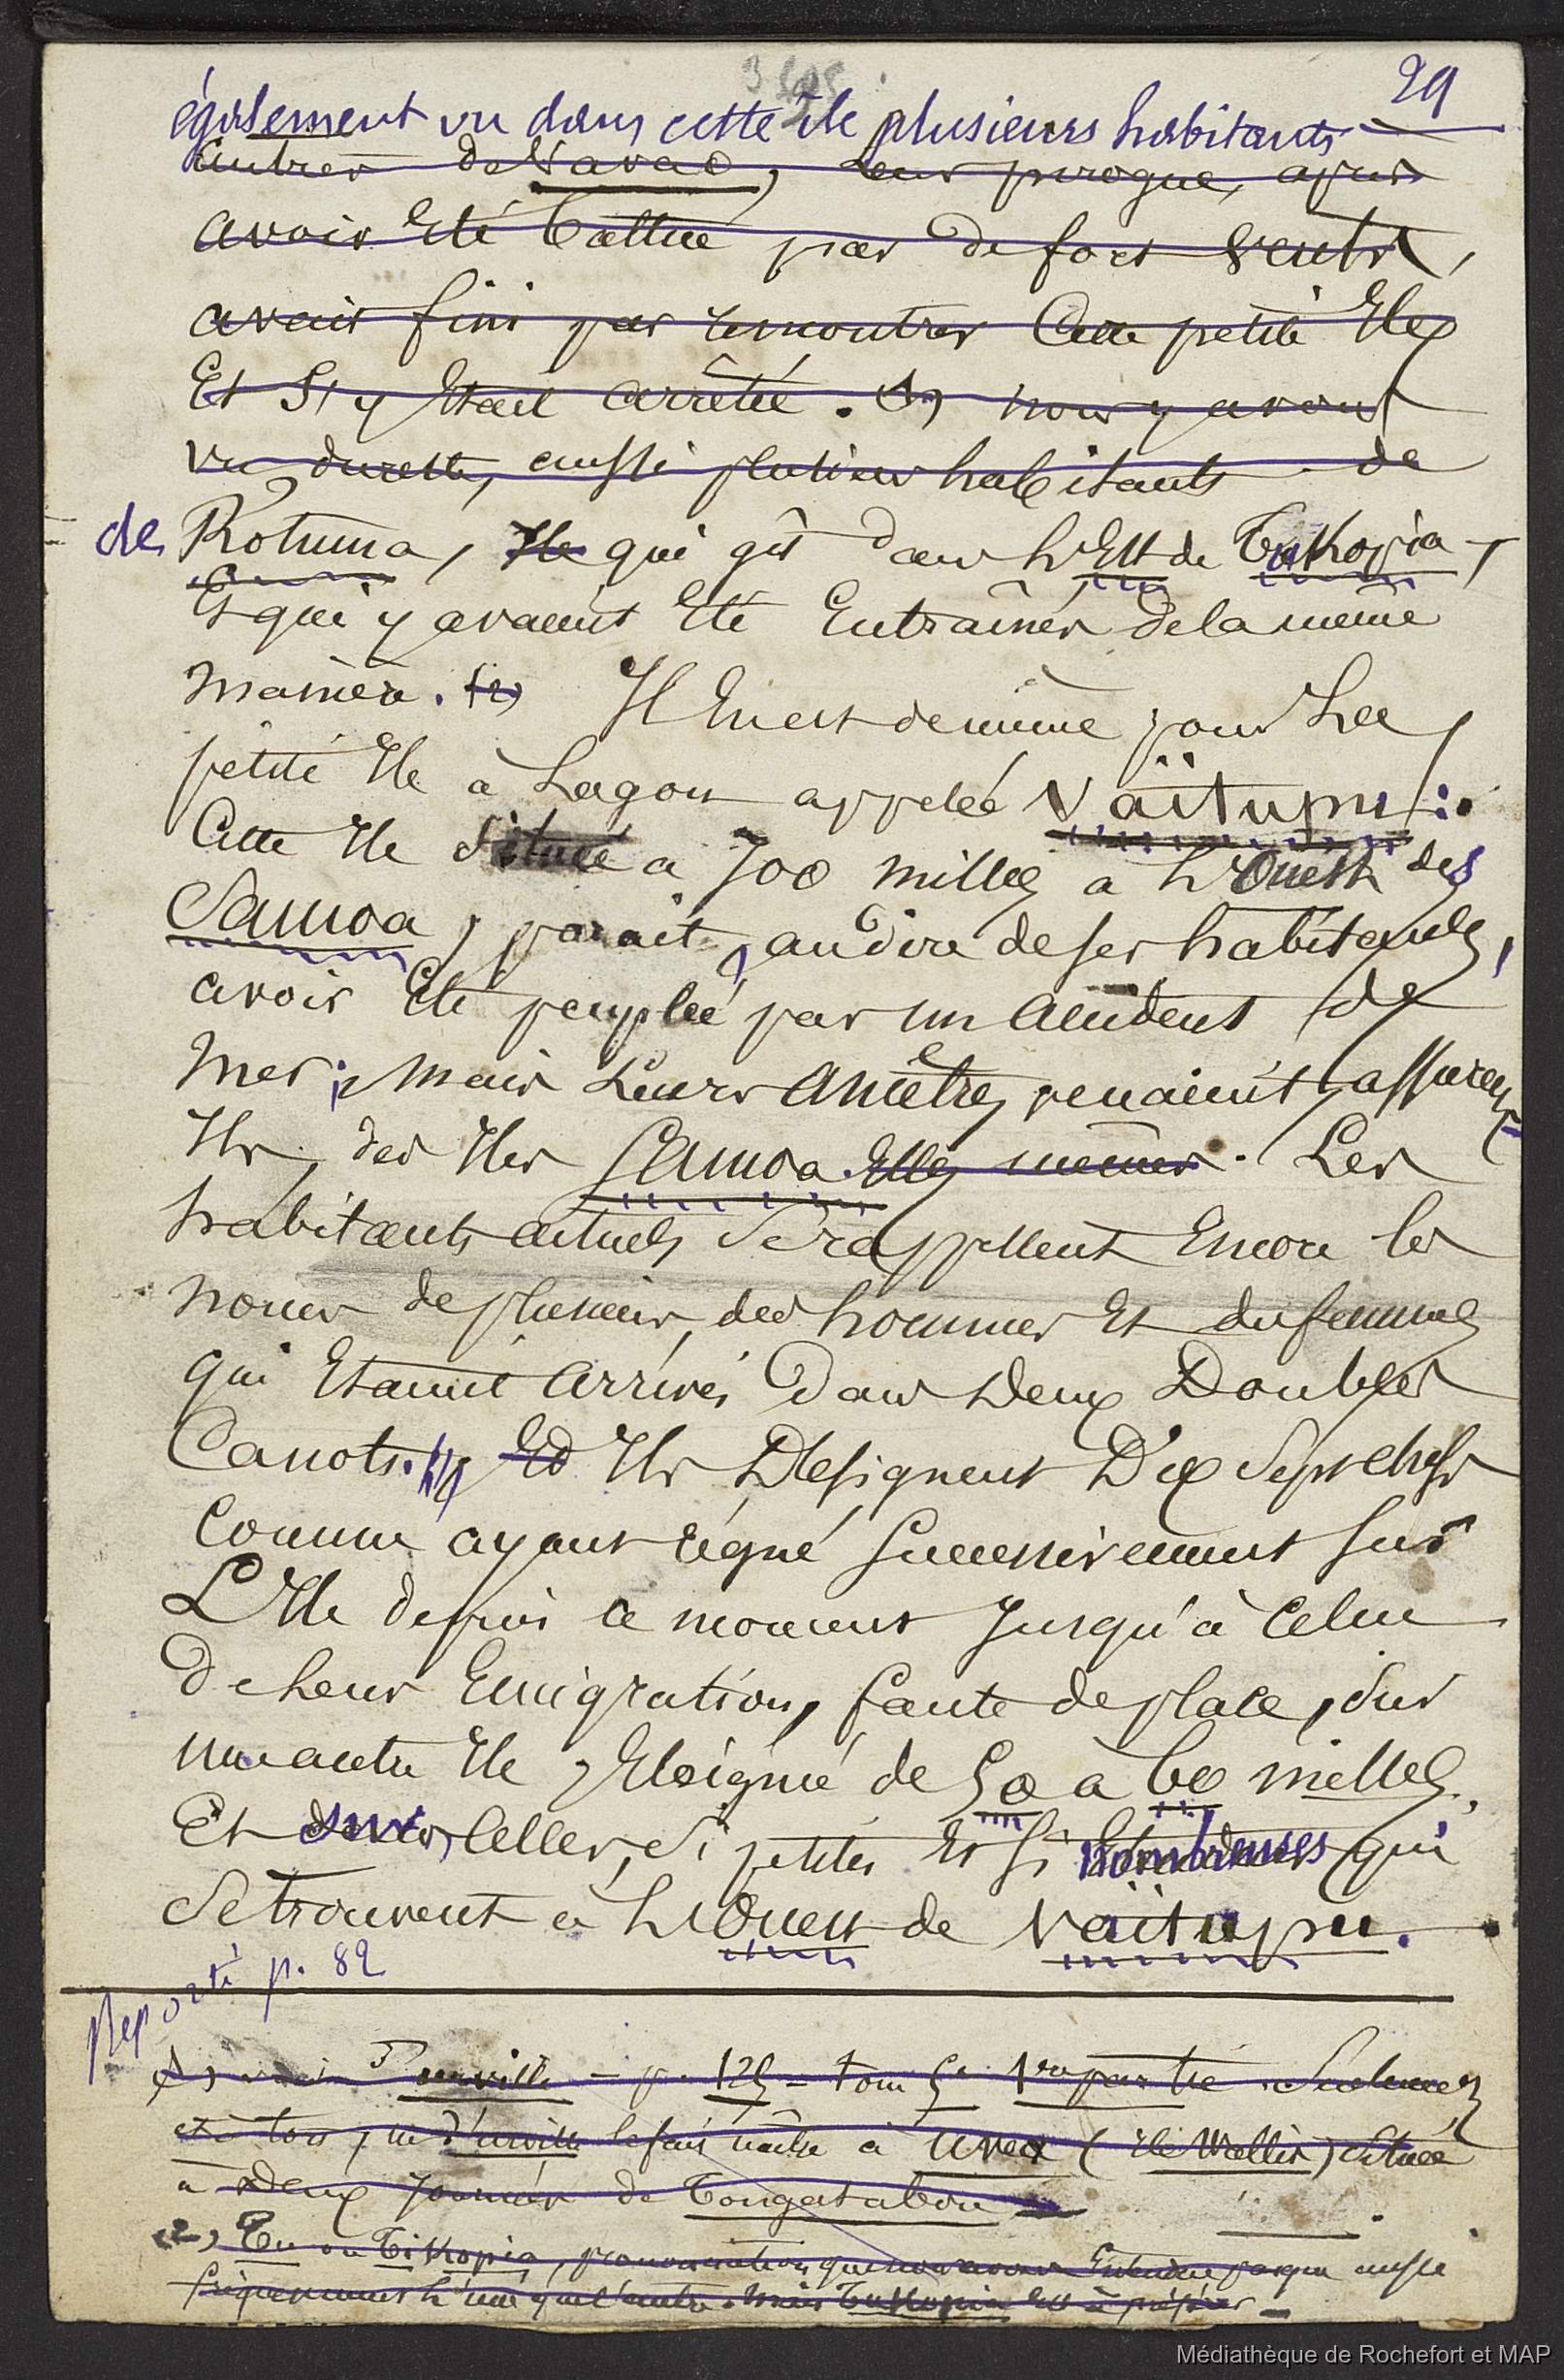 29
également vu dans cette île plusieurs habitants
autres de Vavao, leur pirogue, après
avoir été battue par de forts vents,
avait fini par rencontrer cette petite Ile
Et s'y était arrêtée. (1) nous y avons
vu du reste, aussi plusieurs habitants de
de Rotuma, Ile qui gît dans l'Est de Tukopia,
Et qui y avaient Eté Entraînés de la même
manière. (2) Il En est de même pour La
petite Ile à Lagon appelée Vaïtupu:
Cette Ile Située a 700 milles a L'Ouest des
Samoa, parait, au dire de ses habitants,
avoir Eté peuplée par un accident de
mer; mais Leurs Ancêtres venaient, assurent
Ils, des Iles Samoa Elles mêmes. Les
habitants actuels Se rappellent Encore les
noms de plusieurs des hommes Et des femmes
qui Etaient Arrivés Dans Deux Doubles
Canots. Et Ils Désignent Dix Sept chefs
Comme ayant régné Successivement Sur
L'Ile depuis ce moment Jusqu'à Celui
De Leur Emigration, faute de place, Sur
une autre Ile, Eloignée de 50 a 60 milles,
Et sur Celles, Si petites Et Si nombreuses qui
Se trouvent à L'Ouest de Vaïtupu.
Reporté p. 82
(1) voir Durville - p. 125 - tom 5e 1re partie. Seulement
c'est à tort, que d'urville le fait naître à Uvea (Ile Wallis) Située
à Deux Journées de Tongatabou
(2) Tu ou Tikopia, prononciation que nous avons Entendue presque aussi
fréquemment L'une que l'autre. Mais Tukopia Est à préférer -
Médiathèque de Rochefort et MAP